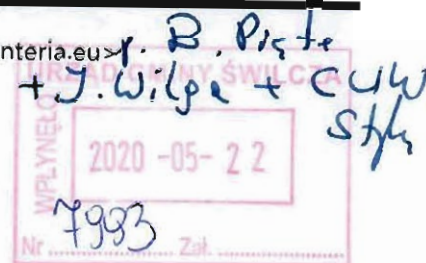 nteria.eu> p. B. Pięta
+ J. Wilga + CUW
URZĄD GMINY ŚWILCZA
WPŁYNĘŁO
2020 -05- 22
Nr 7993 Zał.